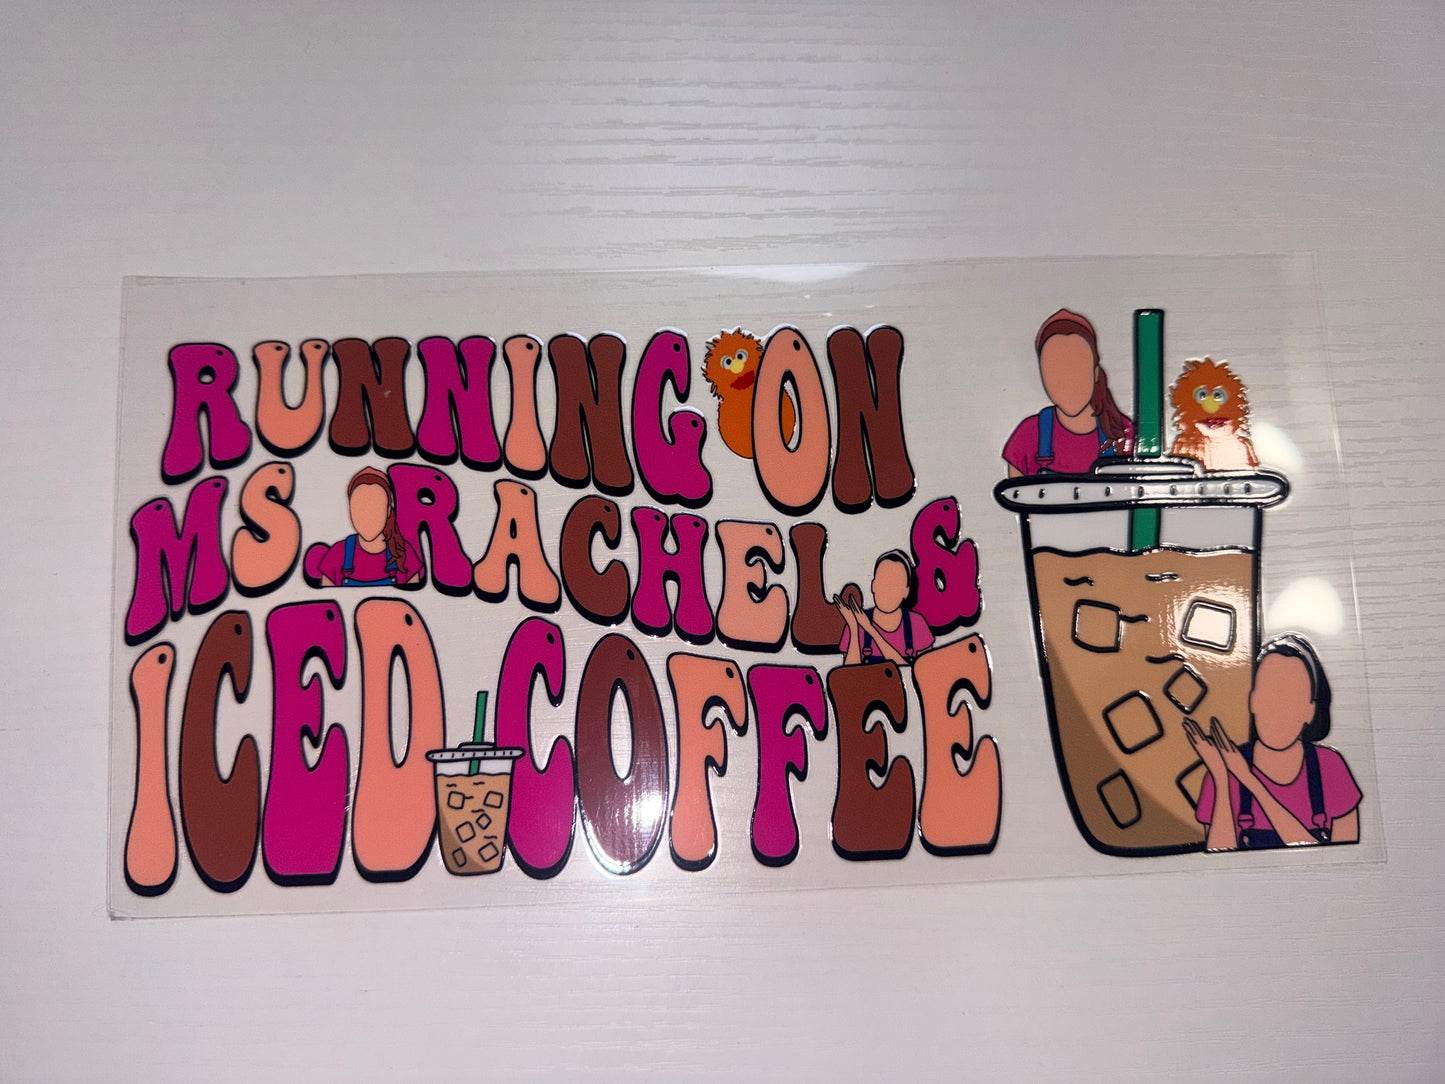 RUNNING ON
MS RACHEL &
ICED COFFEE